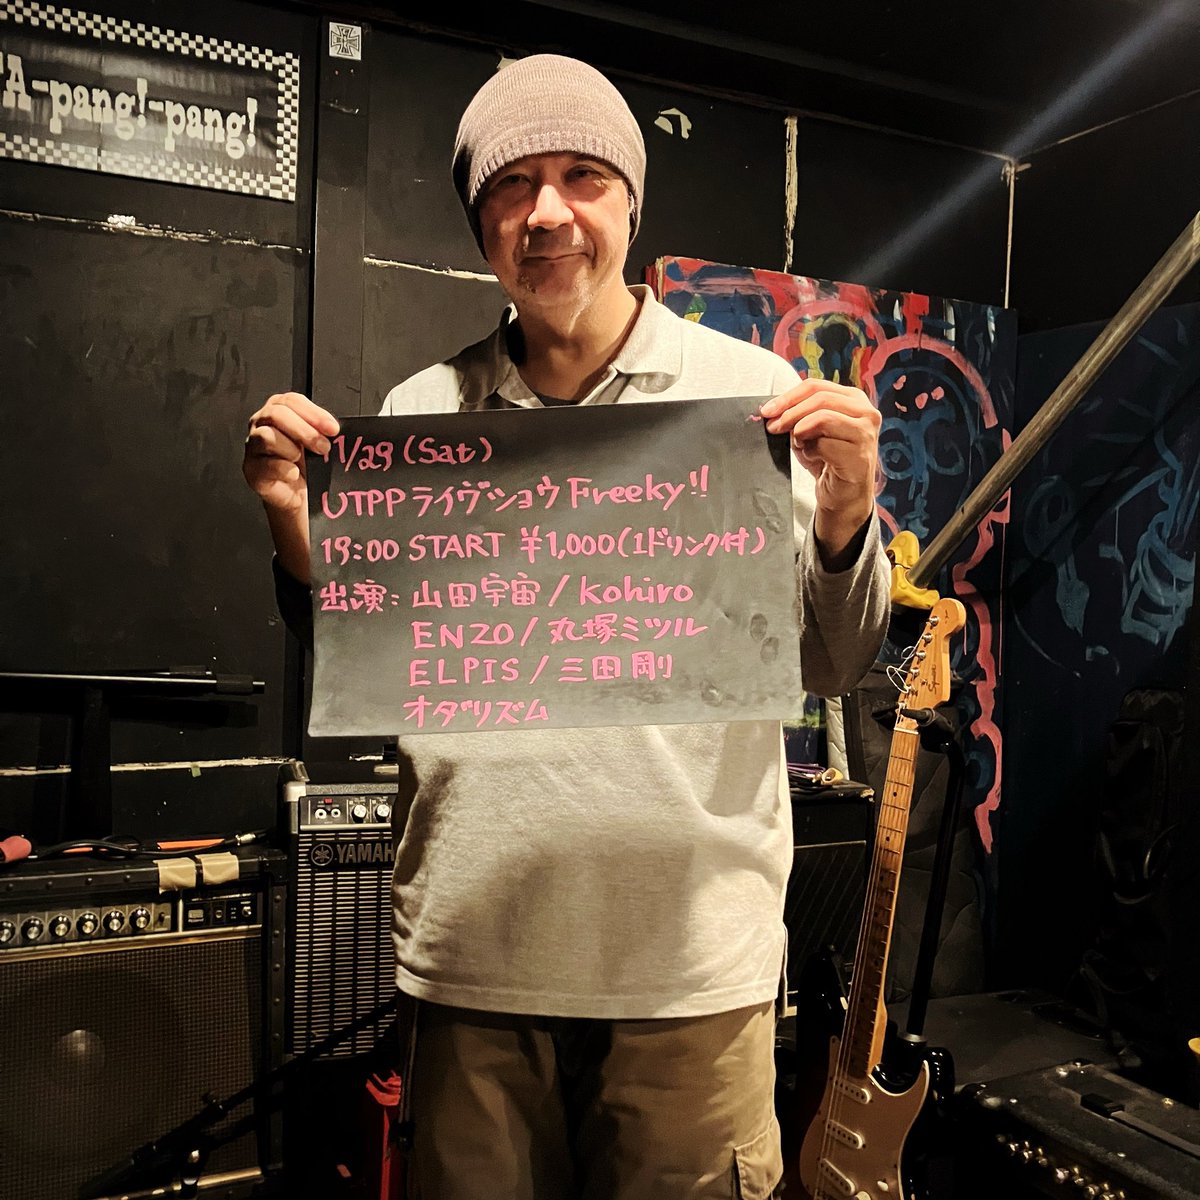 A-pang!-pang!
11/29 (Sat)
UTPPライヴショウFreeky!!
19:00 START ¥1,000(1ドリンク付)
出演: 山田宇宙/kohiro
ENZO/丸塚ミツル
ELPIS/三田剛
オダリズム
YAMAH